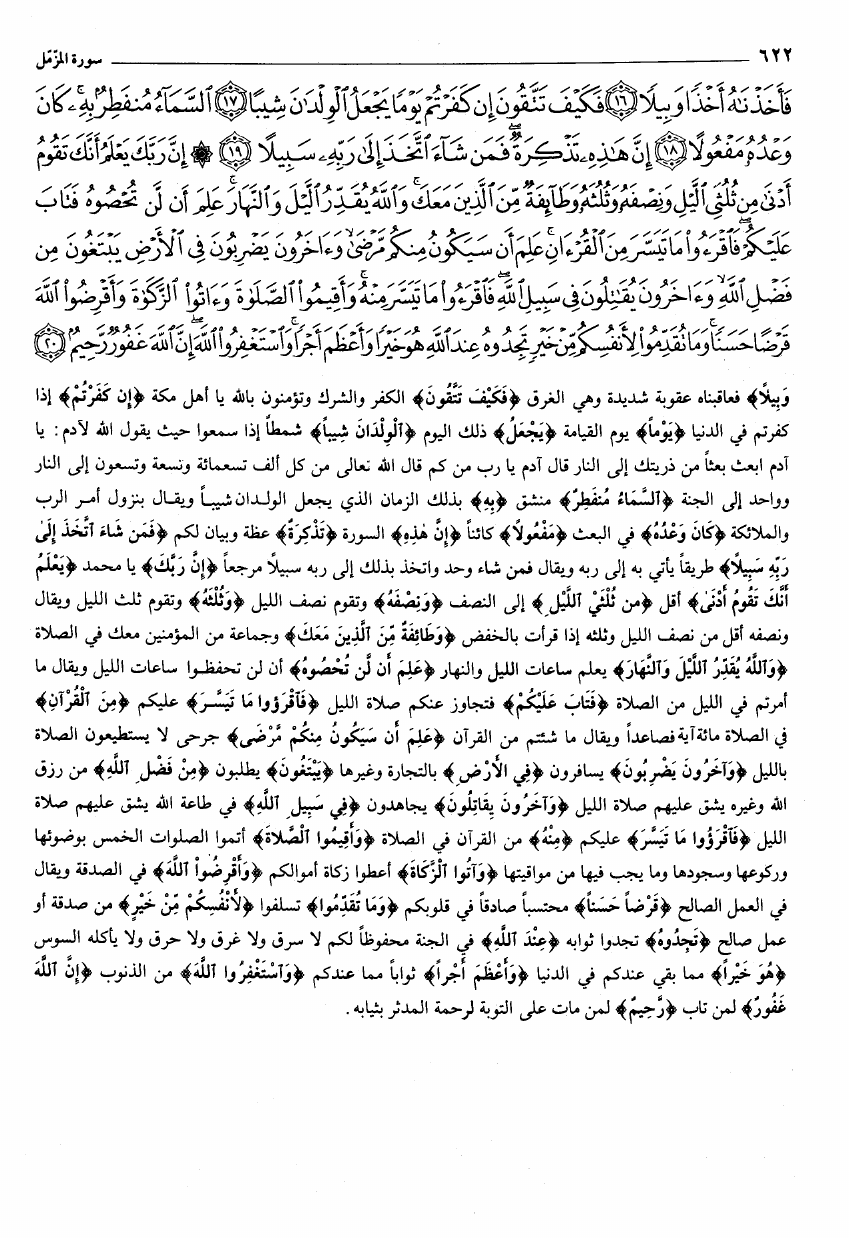 ٦٢٢ سورة المزّمّل
فَأَخَذْنَٰهُ أَخْذًا وَبِيلًا ﴿١٦﴾ فَكَيْفَ تَتَّقُونَ إِن كَفَرْتُمْ يَوْمًا يَجْعَلُ ٱلْوِلْدَٰنَ شِيبًا ﴿١٧﴾ ٱلسَّمَآءُ مُنفَطِرٌۢ بِهِۦ ۚ كَانَ
وَعْدُهُۥ مَفْعُولًا ﴿١٨﴾ إِنَّ هَٰذِهِۦ تَذْكِرَةٌ ۖ فَمَن شَآءَ ٱتَّخَذَ إِلَىٰ رَبِّهِۦ سَبِيلًا ﴿١٩﴾ ۞ إِنَّ رَبَّكَ يَعْلَمُ أَنَّكَ تَقُومُ
أَدْنَىٰ مِن ثُلُثَىِ ٱلَّيْلِ وَنِصْفَهُۥ وَثُلُثَهُۥ وَطَآئِفَةٌ مِّنَ ٱلَّذِينَ مَعَكَ ۚ وَٱللَّهُ يُقَدِّرُ ٱلَّيْلَ وَٱلنَّهَارَ ۚ عَلِمَ أَن لَّن تُحْصُوهُ فَتَابَ
عَلَيْكُمْ ۖ فَٱقْرَءُوا۟ مَا تَيَسَّرَ مِنَ ٱلْقُرْءَانِ ۚ عَلِمَ أَن سَيَكُونُ مِنكُم مَّرْضَىٰ ۙ وَءَاخَرُونَ يَضْرِبُونَ فِى ٱلْأَرْضِ يَبْتَغُونَ مِن
فَضْلِ ٱللَّهِ ۙ وَءَاخَرُونَ يُقَٰتِلُونَ فِى سَبِيلِ ٱللَّهِ ۖ فَٱقْرَءُوا۟ مَا تَيَسَّرَ مِنْهُ ۚ وَأَقِيمُوا۟ ٱلصَّلَوٰةَ وَءَاتُوا۟ ٱلزَّكَوٰةَ وَأَقْرِضُوا۟ ٱللَّهَ
قَرْضًا حَسَنًا ۚ وَمَا تُقَدِّمُوا۟ لِأَنفُسِكُم مِّنْ خَيْرٍ تَجِدُوهُ عِندَ ٱللَّهِ هُوَ خَيْرًا وَأَعْظَمَ أَجْرًا ۚ وَٱسْتَغْفِرُوا۟ ٱللَّهَ ۖ إِنَّ ٱللَّهَ غَفُورٌ رَّحِيمٌۢ ﴿٢٠﴾
وَبِيلاً﴾ فعاقبناه عقوبة شديدة وهي الغرق ﴿فَكَيْفَ تَتَّقُونَ﴾ الكفر والشرك وتؤمنون بالله يا أهل مكة ﴿إِن كَفَرْتُمْ﴾ إذا
كفرتم في الدنيا ﴿يَوْماً﴾ يوم القيامة ﴿يَجْعَلُ﴾ ذلك اليوم ﴿ٱلْوِلْدَانَ شِيباً﴾ شمطاً إذا سمعوا حيث يقول الله لآدم: يا
آدم ابعث بعثاً من ذريتك إلى النار قال آدم يا رب من كم قال الله تعالى من كل ألف تسعمائة وتسعة وتسعون إلى النار
وواحد إلى الجنة ﴿ٱلسَّمَاءُ مُنفَطِرٌ﴾ منشق ﴿بِهِ﴾ بذلك الزمان الذي يجعل الولدان شيباً ويقال بنزول أمر الرب
والملائكة ﴿كَانَ وَعْدُهُ﴾ في البعث ﴿مَفْعُولاً﴾ كائناً ﴿إِنَّ هَٰذِهِ﴾ السورة ﴿تَذْكِرَةٌ﴾ عظة وبيان لكم ﴿فَمَن شَاءَ ٱتَّخَذَ إِلَىٰ
رَبِّهِ سَبِيلاً﴾ طريقاً يأتي به إلى ربه ويقال فمن شاء وحد واتخذ بذلك إلى ربه سبيلاً مرجعاً ﴿إِنَّ رَبَّكَ﴾ يا محمد ﴿يَعْلَمُ
أَنَّكَ تَقُومُ أَدْنَىٰ﴾ أقل ﴿من ثُلُثَيِ ٱللَّيْلِ﴾ إلى النصف ﴿وَنِصْفَهُ﴾ وتقوم نصف الليل ﴿وَثُلُثَهُ﴾ وتقوم ثلث الليل ويقال
ونصفه أقل من نصف الليل وثلثه إذا قرأت بالخفض ﴿وَطَائِفَةٌ مِّنَ ٱلَّذِينَ مَعَكَ﴾ وجماعة من المؤمنين معك في الصلاة
﴿وَٱللَّهُ يُقَدِّرُ ٱللَّيْلَ وَٱلنَّهَارَ﴾ يعلم ساعات الليل والنهار ﴿عَلِمَ أَن لَّن تُحْصُوهُ﴾ أن لن تحفظوا ساعات الليل ويقال ما
أمرتم في الليل من الصلاة ﴿فَتَابَ عَلَيْكُمْ﴾ فتجاوز عنكم صلاة الليل ﴿فَٱقْرَؤُوا مَا تَيَسَّرَ﴾ عليكم ﴿مِنَ ٱلْقُرْآنِ﴾
في الصلاة مائة آية فصاعداً ويقال ما شئتم من القرآن ﴿عَلِمَ أَن سَيَكُونُ مِنكُمْ مَّرْضَى﴾ جرحى لا يستطيعون الصلاة
بالليل ﴿وَآخَرُونَ يَضْرِبُونَ﴾ يسافرون ﴿فِي الأَرْضِ﴾ بالتجارة وغيرها ﴿يَبْتَغُونَ﴾ يطلبون ﴿مِنْ فَضْلِ ٱللَّهِ﴾ من رزق
الله وغيره يشق عليهم صلاة الليل ﴿وَآخَرُونَ يُقَاتِلُونَ﴾ يجاهدون ﴿فِي سَبِيلِ ٱللَّهِ﴾ في طاعة الله يشق عليهم صلاة
الليل ﴿فَٱقْرَؤُوا مَا تَيَسَّرَ﴾ عليكم ﴿مِنْهُ﴾ من القرآن في الصلاة ﴿وَأَقِيمُوا ٱلصَّلاةَ﴾ أتموا الصلوات الخمس بوضوئها
وركوعها وسجودها وما يجب فيها من مواقيتها ﴿وَآتُوا ٱلزَّكَاةَ﴾ أعطوا زكاة أموالكم ﴿وَأَقْرِضُواْ ٱللَّهَ﴾ في الصدقة ويقال
في العمل الصالح ﴿قَرْضاً حَسَناً﴾ محتسباً صادقاً في قلوبكم ﴿وَمَا تُقَدِّمُوا﴾ تسلفوا ﴿لأَنْفُسِكُمْ مِّنْ خَيْرٍ﴾ من صدقة أو
عمل صالح ﴿تَجِدُوهُ﴾ تجدوا ثوابه ﴿عِنْدَ ٱللَّهِ﴾ في الجنة محفوظاً لكم لا سرق ولا غرق ولا حرق ولا يأكله السوس
﴿هُوَ خَيْراً﴾ مما بقي عندكم في الدنيا ﴿وَأَعْظَمَ أَجْراً﴾ ثواباً مما عندكم ﴿وَٱسْتَغْفِرُوا ٱللَّهَ﴾ من الذنوب ﴿إِنَّ ٱللَّهَ
غَفُورٌ﴾ لمن تاب ﴿رَّحِيمٌ﴾ لمن مات على التوبة لرحمة المدثر بثيابه.